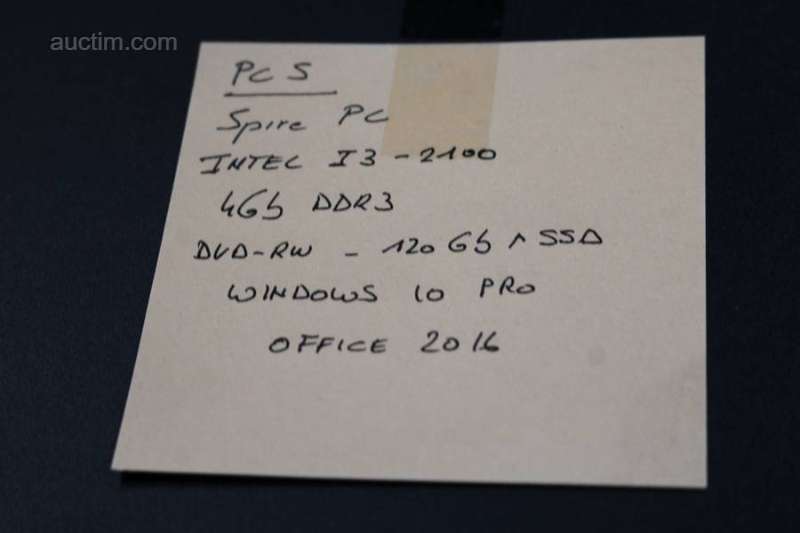 auctim.com
PC 5
Spire PC
INTEL I3-2100
4Gb DDR3
DVD-RW - 120Gb SSD
WINDOWS 10 PRO
OFFICE 2016